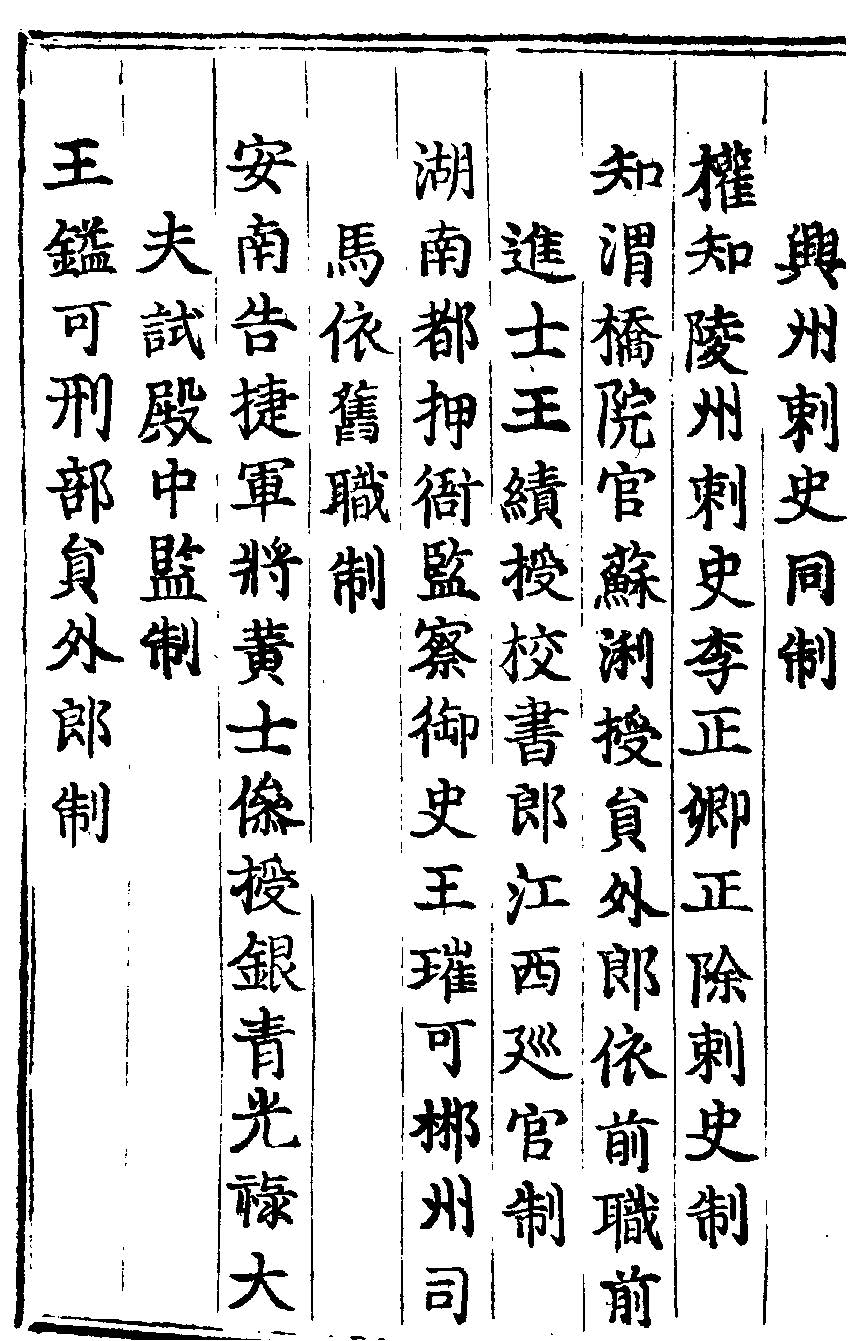 興州刺史同制
權知陵州刺史李正卿正除刺史制
知渭橋院官蘇浰授貟外郎依前職前
進士王績授校書郎江西廵官制
湖南都押衙監察御史王璀可郴州司
馬依舊職制
安南告捷軍將黃士傪授銀青光祿大
夫試殿中監制
王鑑可刑部貟外郎制